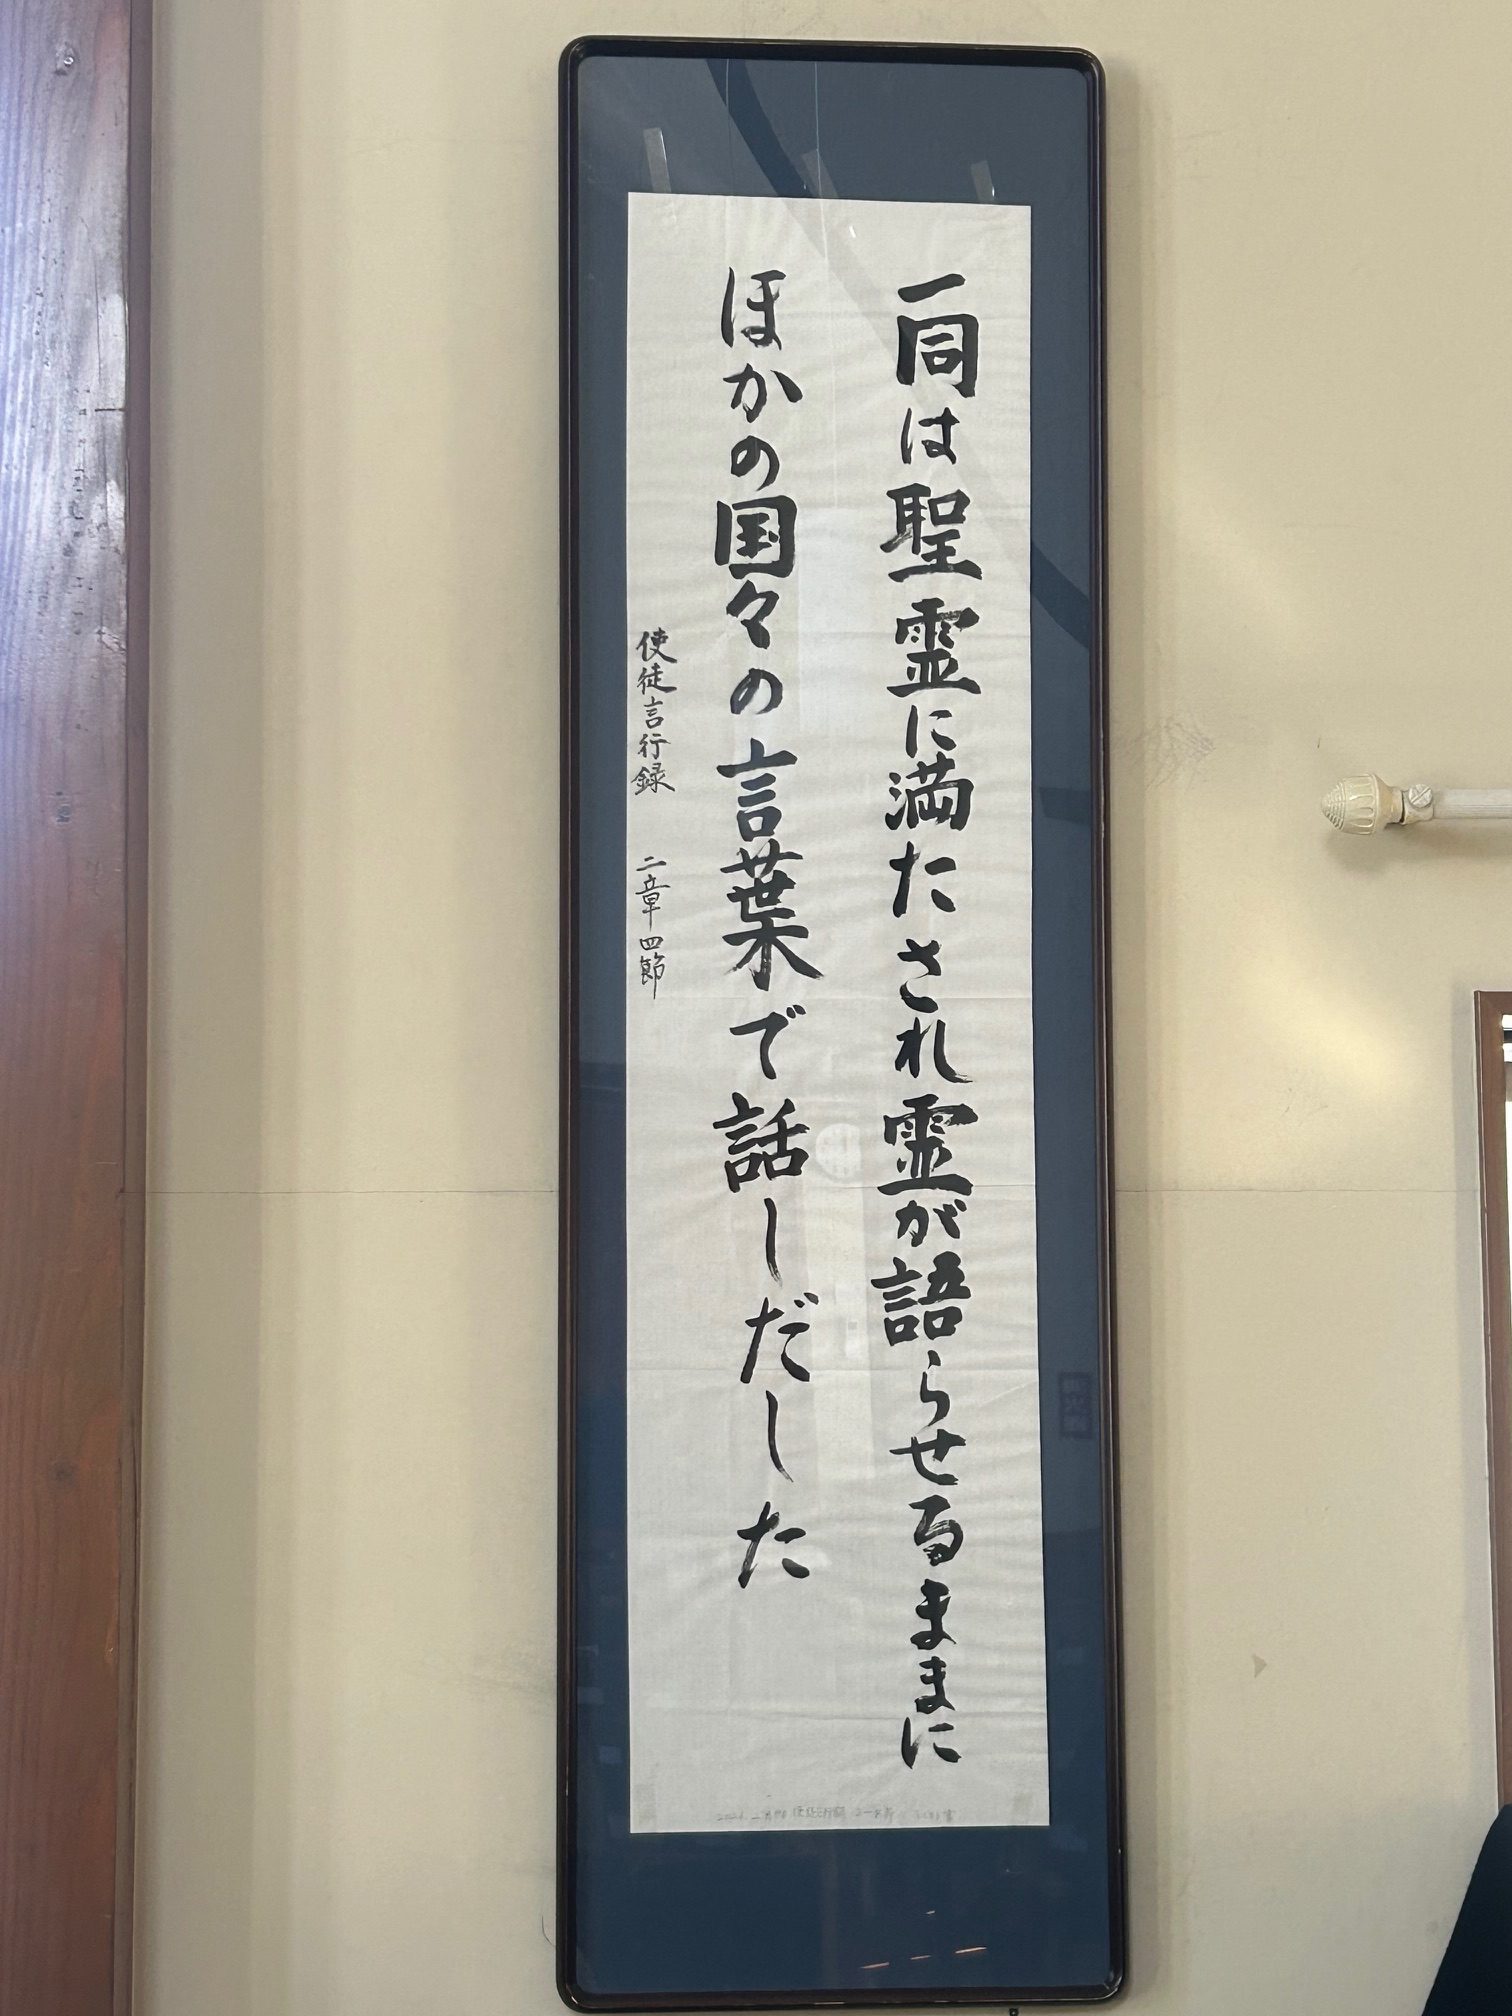 一同は聖霊に満たされ霊が語らせるままに
ほかの国々の言葉で話しだした
使徒言行録 二章四節